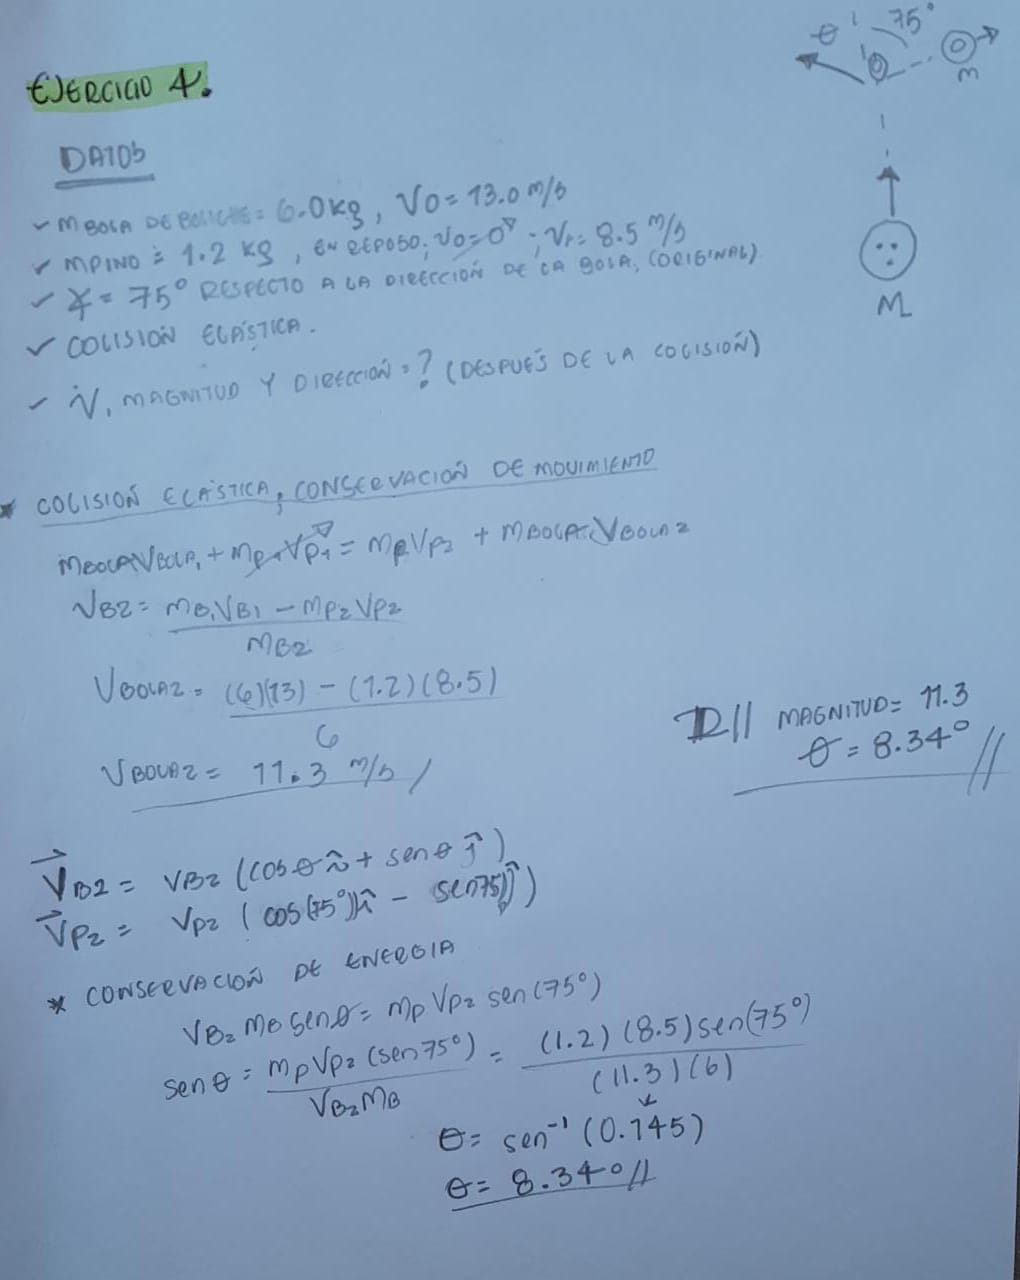 EJERCICIO 4.
θ 75°
m
M
DATOS
✓ M BOLA DE BOLICHE = 6.0 kg, Vo = 13.0 m/s
✓ MPINO = 1.2 kg, EN REPOSO; Vo = 0 ; Vf = 8.5 m/s
✓ ∡ = 75° RESPECTO A LA DIRECCIÓN DE LA BOLA, (ORIGINAL)
✓ COLISIÓN ELÁSTICA.
✓ V, MAGNITUD Y DIRECCIÓN = ? (DESPUÉS DE LA COLISIÓN)
* COLISIÓN ELÁSTICA, CONSERVACIÓN DE MOVIMIENTO
MBOLA VBOLA1 + MP1 VP1 = MP VP2 + MBOLA VBOLA2
VB2 = MB1 VB1 - MP2 VP2
MB2
VBOLA2 = (6)(13) - (1.2)(8.5)
6
VBOLA2 = 11.3 m/s
R// MAGNITUD = 11.3
θ = 8.34° //
VB2 = VB2 (cos θ î + sen θ ĵ)
VP2 = VP2 (cos(75°)î - sen75)ĵ)
* CONSERVACIÓN DE ENERGIA
VB2 MB sen θ = mp VP2 sen (75°)
sen θ = mp VP2 (sen 75°) = (1.2) (8.5) sen(75°)
VB2 MB (11.3) (6)
θ = sen⁻¹ (0.145)
θ = 8.34° //